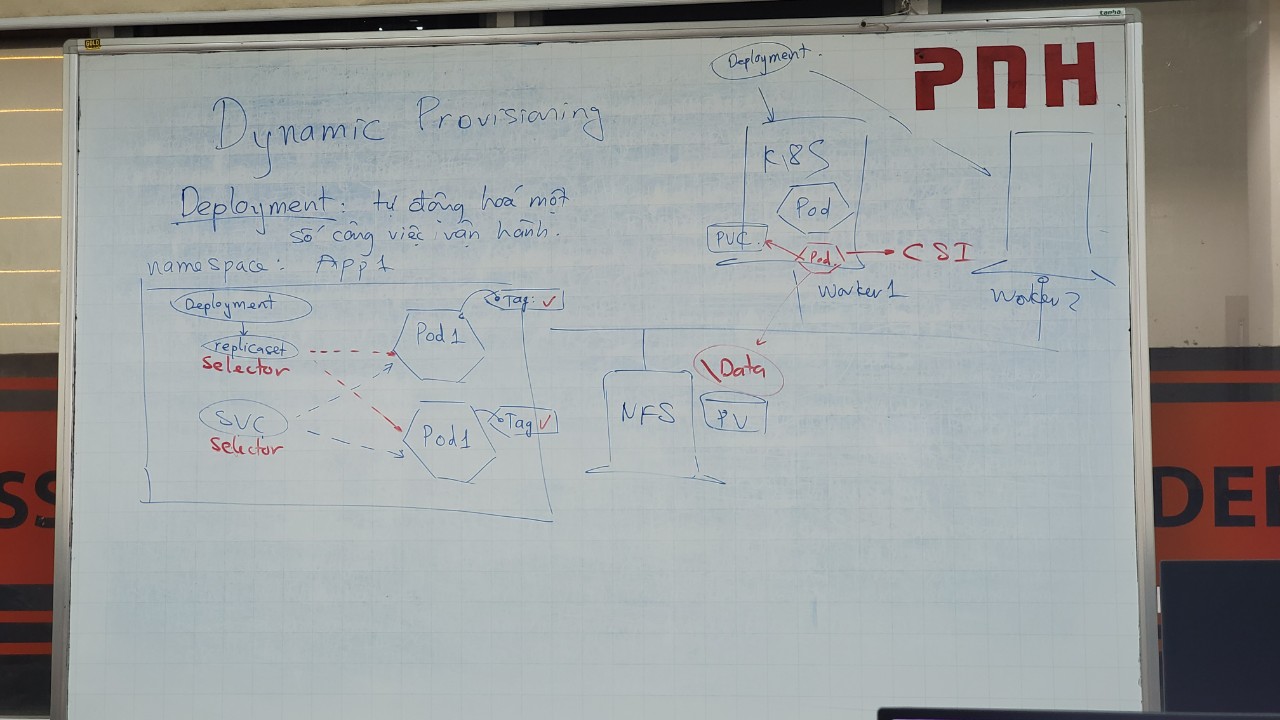 GOLD
Dynamic Provisioning
Deployment: tự động hoá một
số công việc vận hành.
namespace: App1
Deployment
replicaset
selector
SVC
selector
Pod1
Tag: ✓
Pod1
Tag ✓
Deployment.
PNH
K8S
Pod
PVC.
Pod
CSI
Worker1
Worker2
\Data
NFS
PV
SS
DEL